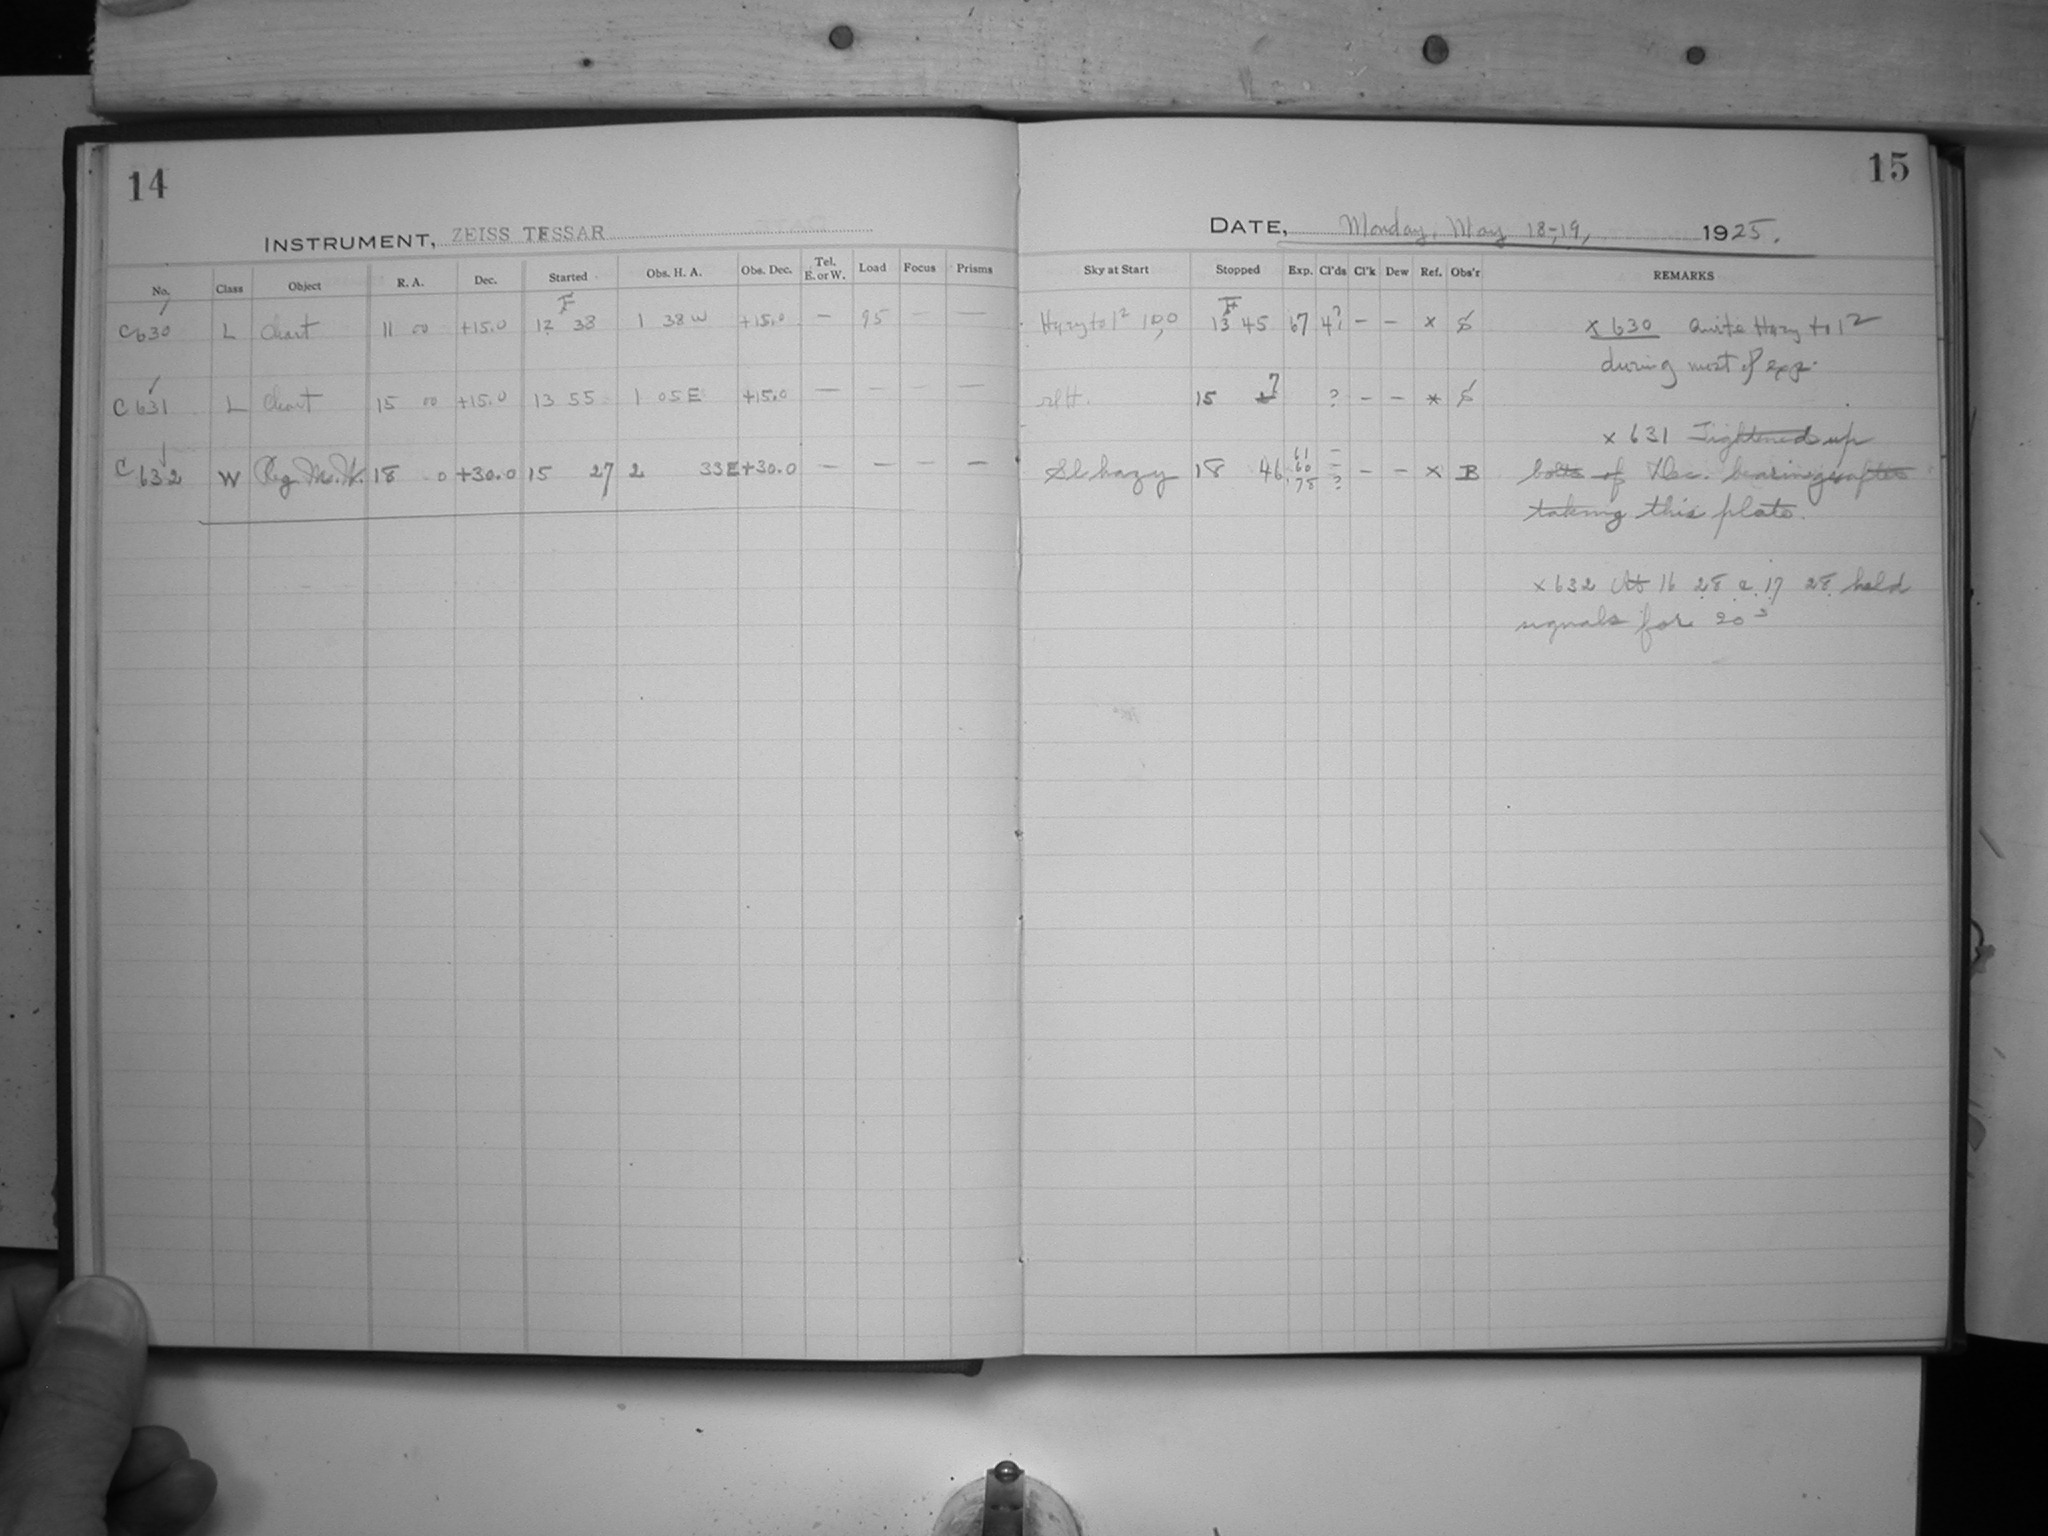 14
15
INSTRUMENT, ZEISS TESSAR
DATE, Monday, May 18-19, 1925.
No. Class Object R. A. Dec. Started Obs. H. A. Obs. Dec. Tel. E. or W. Load Focus Prisms
Sky at Start Stopped Exp. Cl'ds Cl'k Dew Ref. Obs'r REMARKS
F
C630 L Chart 11 00 +15.0 12 38 1 38 W +15.0 — 95 — —
F
Hazy to 1² 13 45 67 4? – – x
x 630 Quite Hazy to 1²
during most of exp.
C631 L Chart 15 00 +15.0 13 55 1 05 E +15.0 — — — —
15 7 ? – – *
x 631 Tightened up
bolts of Dec. bearings after
taking this plate.
C632 W Reg. M. W. 18 0 +30.0 15 27 2 33E +30.0 — — — —
Sl hazy 18 46 61 – 60 – 78 ? – – x B
x 632 At 16 28 & 17 28 held
signals for 20ˢ